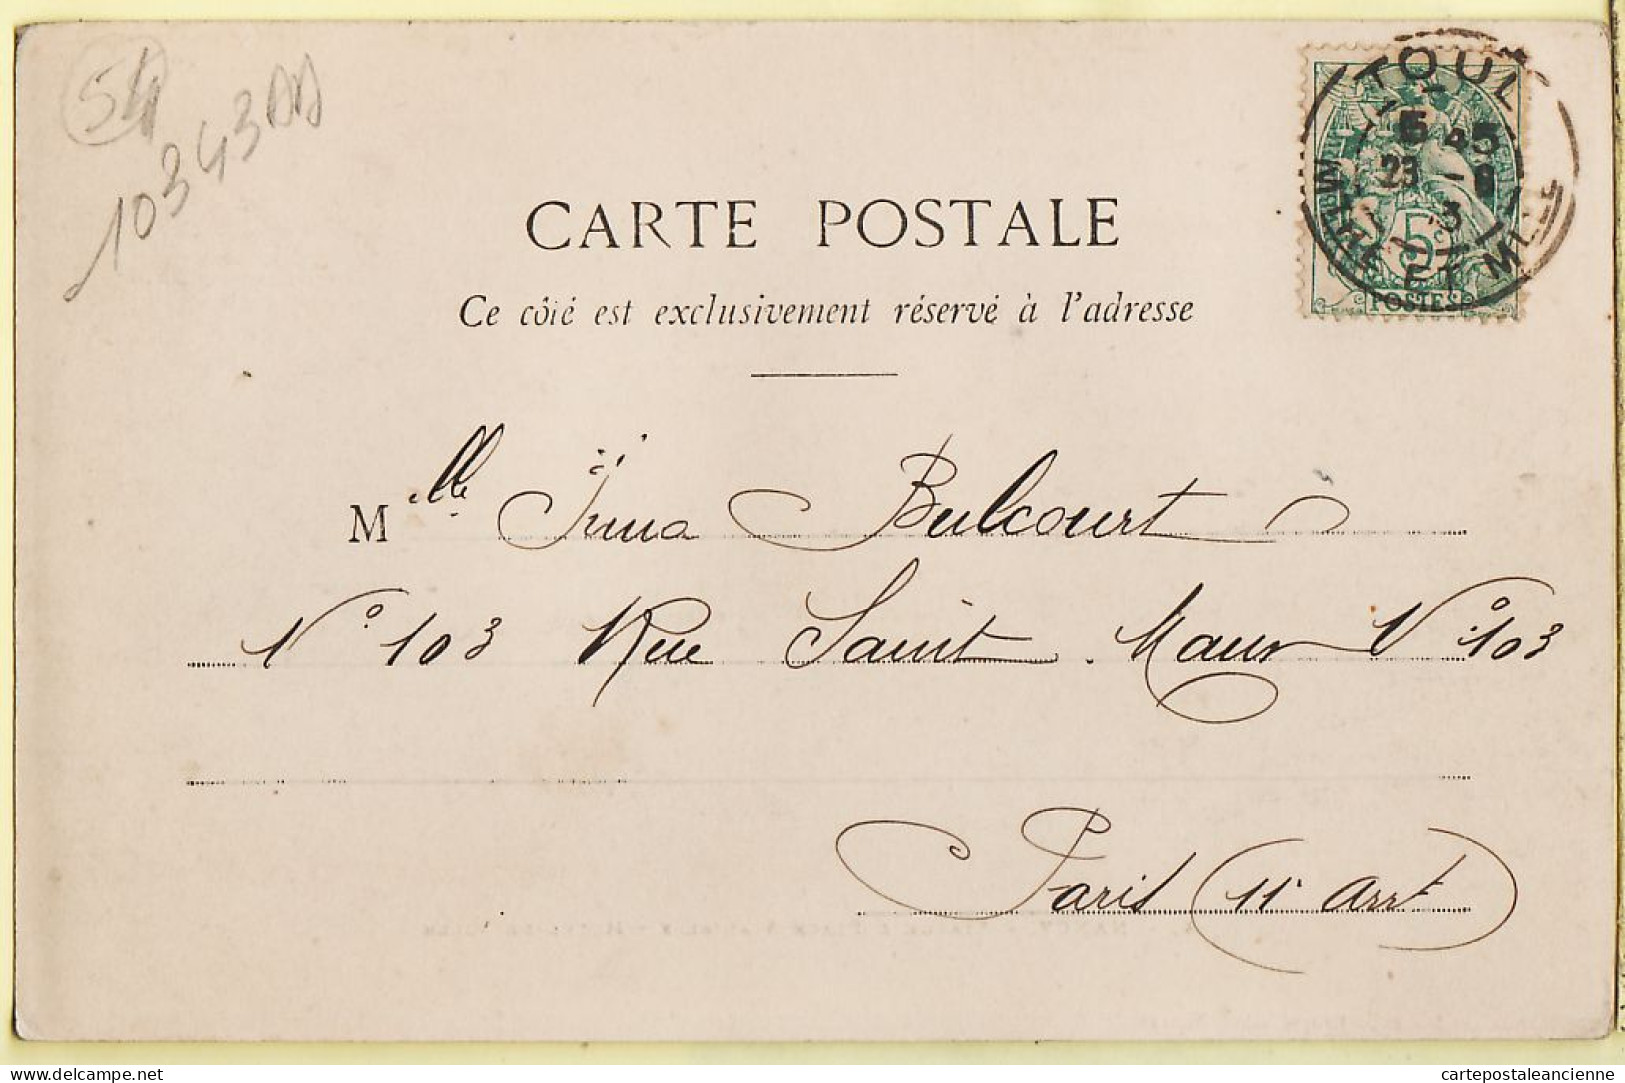 54
10343AA
TOUL
5 45
23 - 8
3
MTHE ET MLLE
5c
POSTES
CARTE POSTALE
Ce côté est exclusivement réservé à l'adresse
Mlle Irma Bulcourt
N° 103 Rue Saint Maur N° 103
Paris (11e Arrt)
delcampe.net
cartepostaleancienne